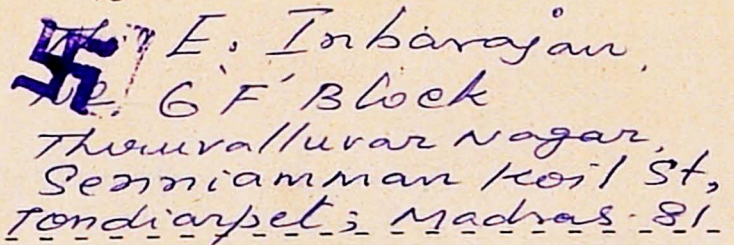 E. Inbarajan,
6 'F' Block
Thiruvalluvar Nagar,
Senniamman Koil St,
Tondiarpet; Madras-81